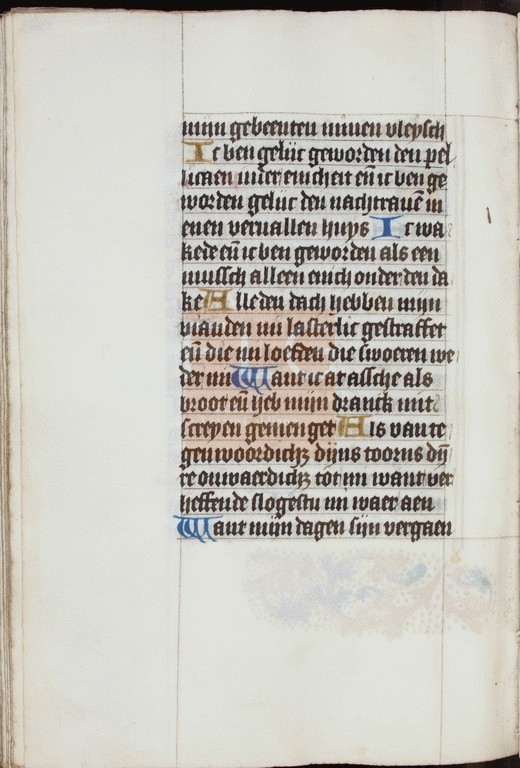 mijn gebeenten minen vleysch
Ic ben gelijc geworden den pel
licaen in der enicheit eñ ic ben ge
worden gelijc den nachtrauē in
enen veruallen huys Ic wa
kede eñ ic ben geworden als een
mussch alleen enich onder den da
ke Alle den dach hebben mijn
vianden mi lasterlic gestraffet
eñ die mi loefden die swoeren we
der mi Want ic at assche als
broot eñ heb mijn dranck mit
screyen gemenget Als van te
genwoordich dijns toorns dijn
re onwaerdich tot mi want ver
heffende slogestu mi waer aen
Want mijn dagen sijn vergaen